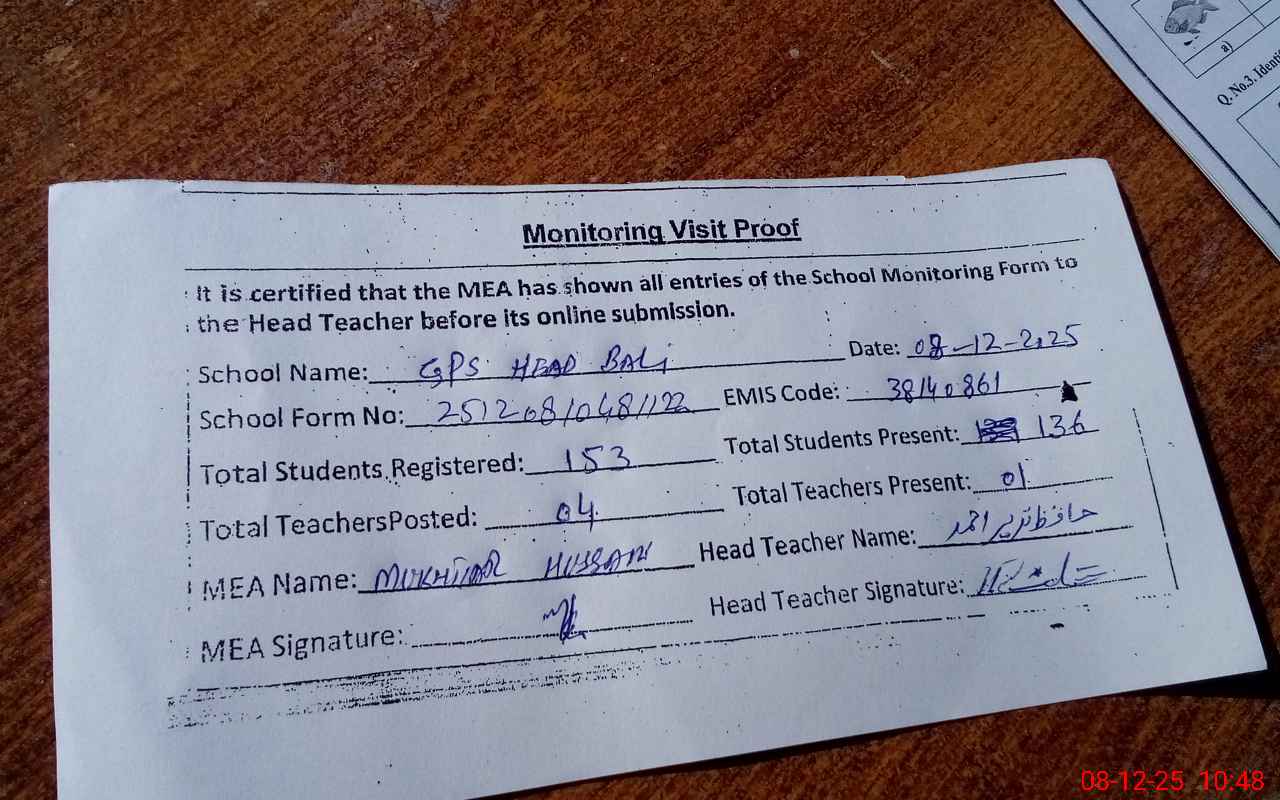 a)
Q. No.3. Identi
Monitoring Visit Proof
It is certified that the MEA has shown all entries of the School Monitoring Form to
the Head Teacher before its online submission.
School Name: GPS HEAD BALI Date: 08-12-2025
School Form No: 25120810481122 EMIS Code: 38140861
Total Students Registered: 153 Total Students Present: 136
Total TeachersPosted: 04 Total Teachers Present: 01
MEA Name: MUKHTIAR HUSSAIN Head Teacher Name: حافظ نزیر احمد
MEA Signature: Head Teacher Signature:
08-12-25 10:48